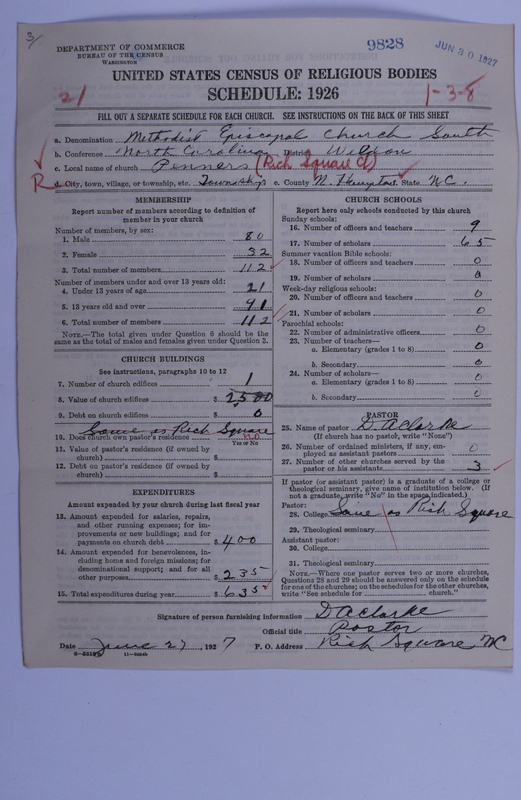 3/
DEPARTMENT OF COMMERCE
BUREAU OF THE CENSUS
WASHINGTON
9828
JUN 30 1927
UNITED STATES CENSUS OF RELIGIOUS BODIES
21
SCHEDULE: 1926
1-3-8
FILL OUT A SEPARATE SCHEDULE FOR EACH CHURCH. SEE INSTRUCTIONS ON THE BACK OF THIS SHEET
a. Denomination Methodist Episcopal Church South
b. Conference North Carolina District Weldon
c. Local name of church Penners (Rich Square Ct)
R
d. City, town, village, or township, etc. Township e. County N. Hampton State N.C.
MEMBERSHIP
Report number of members according to definition of
member in your church
Number of members, by sex:
1. Male 80
2. Female 32
3. Total number of members 112
Number of members under and over 13 years old:
4. Under 13 years of age 21
5. 13 years old and over 91
6. Total number of members 112
NOTE.—The total given under Question 6 should be the
same as the total of males and females given under Question 3.
CHURCH BUILDINGS
See instructions, paragraphs 10 to 12
7. Number of church edifices 1
8. Value of church edifices $ 2,500
9. Debt on church edifices $ 0
Same as Rich Square
10. Does church own pastor's residence no
Yes or No
11. Value of pastor's residence (if owned by
church) $
12. Debt on pastor's residence (if owned by
church) $
EXPENDITURES
Amount expended by your church during last fiscal year
13. Amount expended for salaries, repairs,
and other running expenses; for im-
provements or new buildings; and for
payments on church debt $ 400
14. Amount expended for benevolences, in-
cluding home and foreign missions; for
denominational support; and for all
other purposes $ 235
15. Total expenditures during year $ 635
CHURCH SCHOOLS
Report here only schools conducted by this church
Sunday schools:
16. Number of officers and teachers 9
17. Number of scholars 65
Summer vacation Bible schools:
18. Number of officers and teachers 0
19. Number of scholars 0
Week-day religious schools:
20. Number of officers and teachers 0
21. Number of scholars 0
Parochial schools:
22. Number of administrative officers 0
23. Number of teachers—
a. Elementary (grades 1 to 8) 0
b. Secondary 0
24. Number of scholars—
a. Elementary (grades 1 to 8) 0
b. Secondary 0
PASTOR
25. Name of pastor D A Clarke
(If church has no pastor, write "None")
26. Number of ordained ministers, if any, em-
ployed as assistant pastors 0
27. Number of other churches served by the
pastor or his assistants 3
If pastor (or assistant pastor) is a graduate of a college or
theological seminary, give name of institution below. (If
not a graduate, write "No" in the space indicated.)
Pastor:
28. College Same as Rich Square
29. Theological seminary
Assistant pastor:
30. College
31. Theological seminary
NOTE.—Where one pastor serves two or more churches,
Questions 28 and 29 should be answered only on the schedule
for one of the churches; on the schedules for the other churches,
write "See schedule for church."
Signature of person furnishing information D A Clarke
Official title Pastor
Date June 27, 1927 P. O. Address Rich Square NC